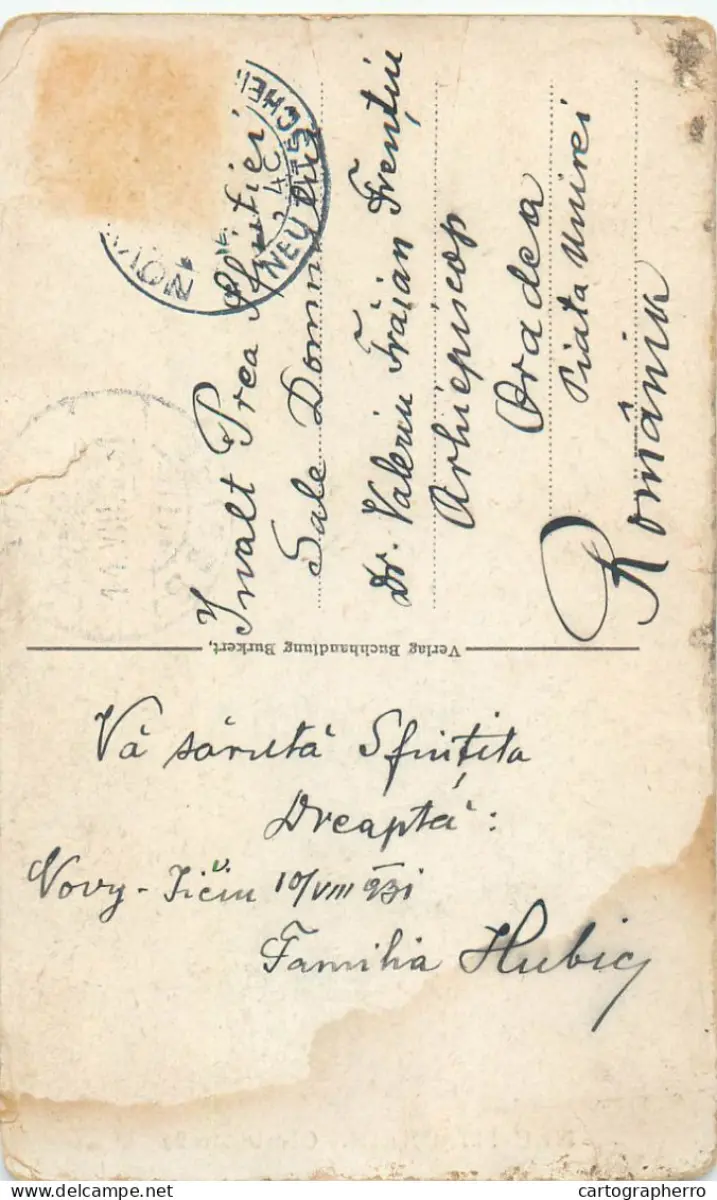 Vă sărută Sfințita
Dreaptă:
Novy-Jičin 10/VIII 931
Familia Hubig
Verlag Buchhandlung Burkert,
Inalt Prea Sfinției
Sale Domnului
Dr. Valeriu Traian Frențiu
Arhiepiscop
Oradea
Piata Unirei
România
NEU TITSCHEIN
NOVÝ
delcampe.net
cartographerro